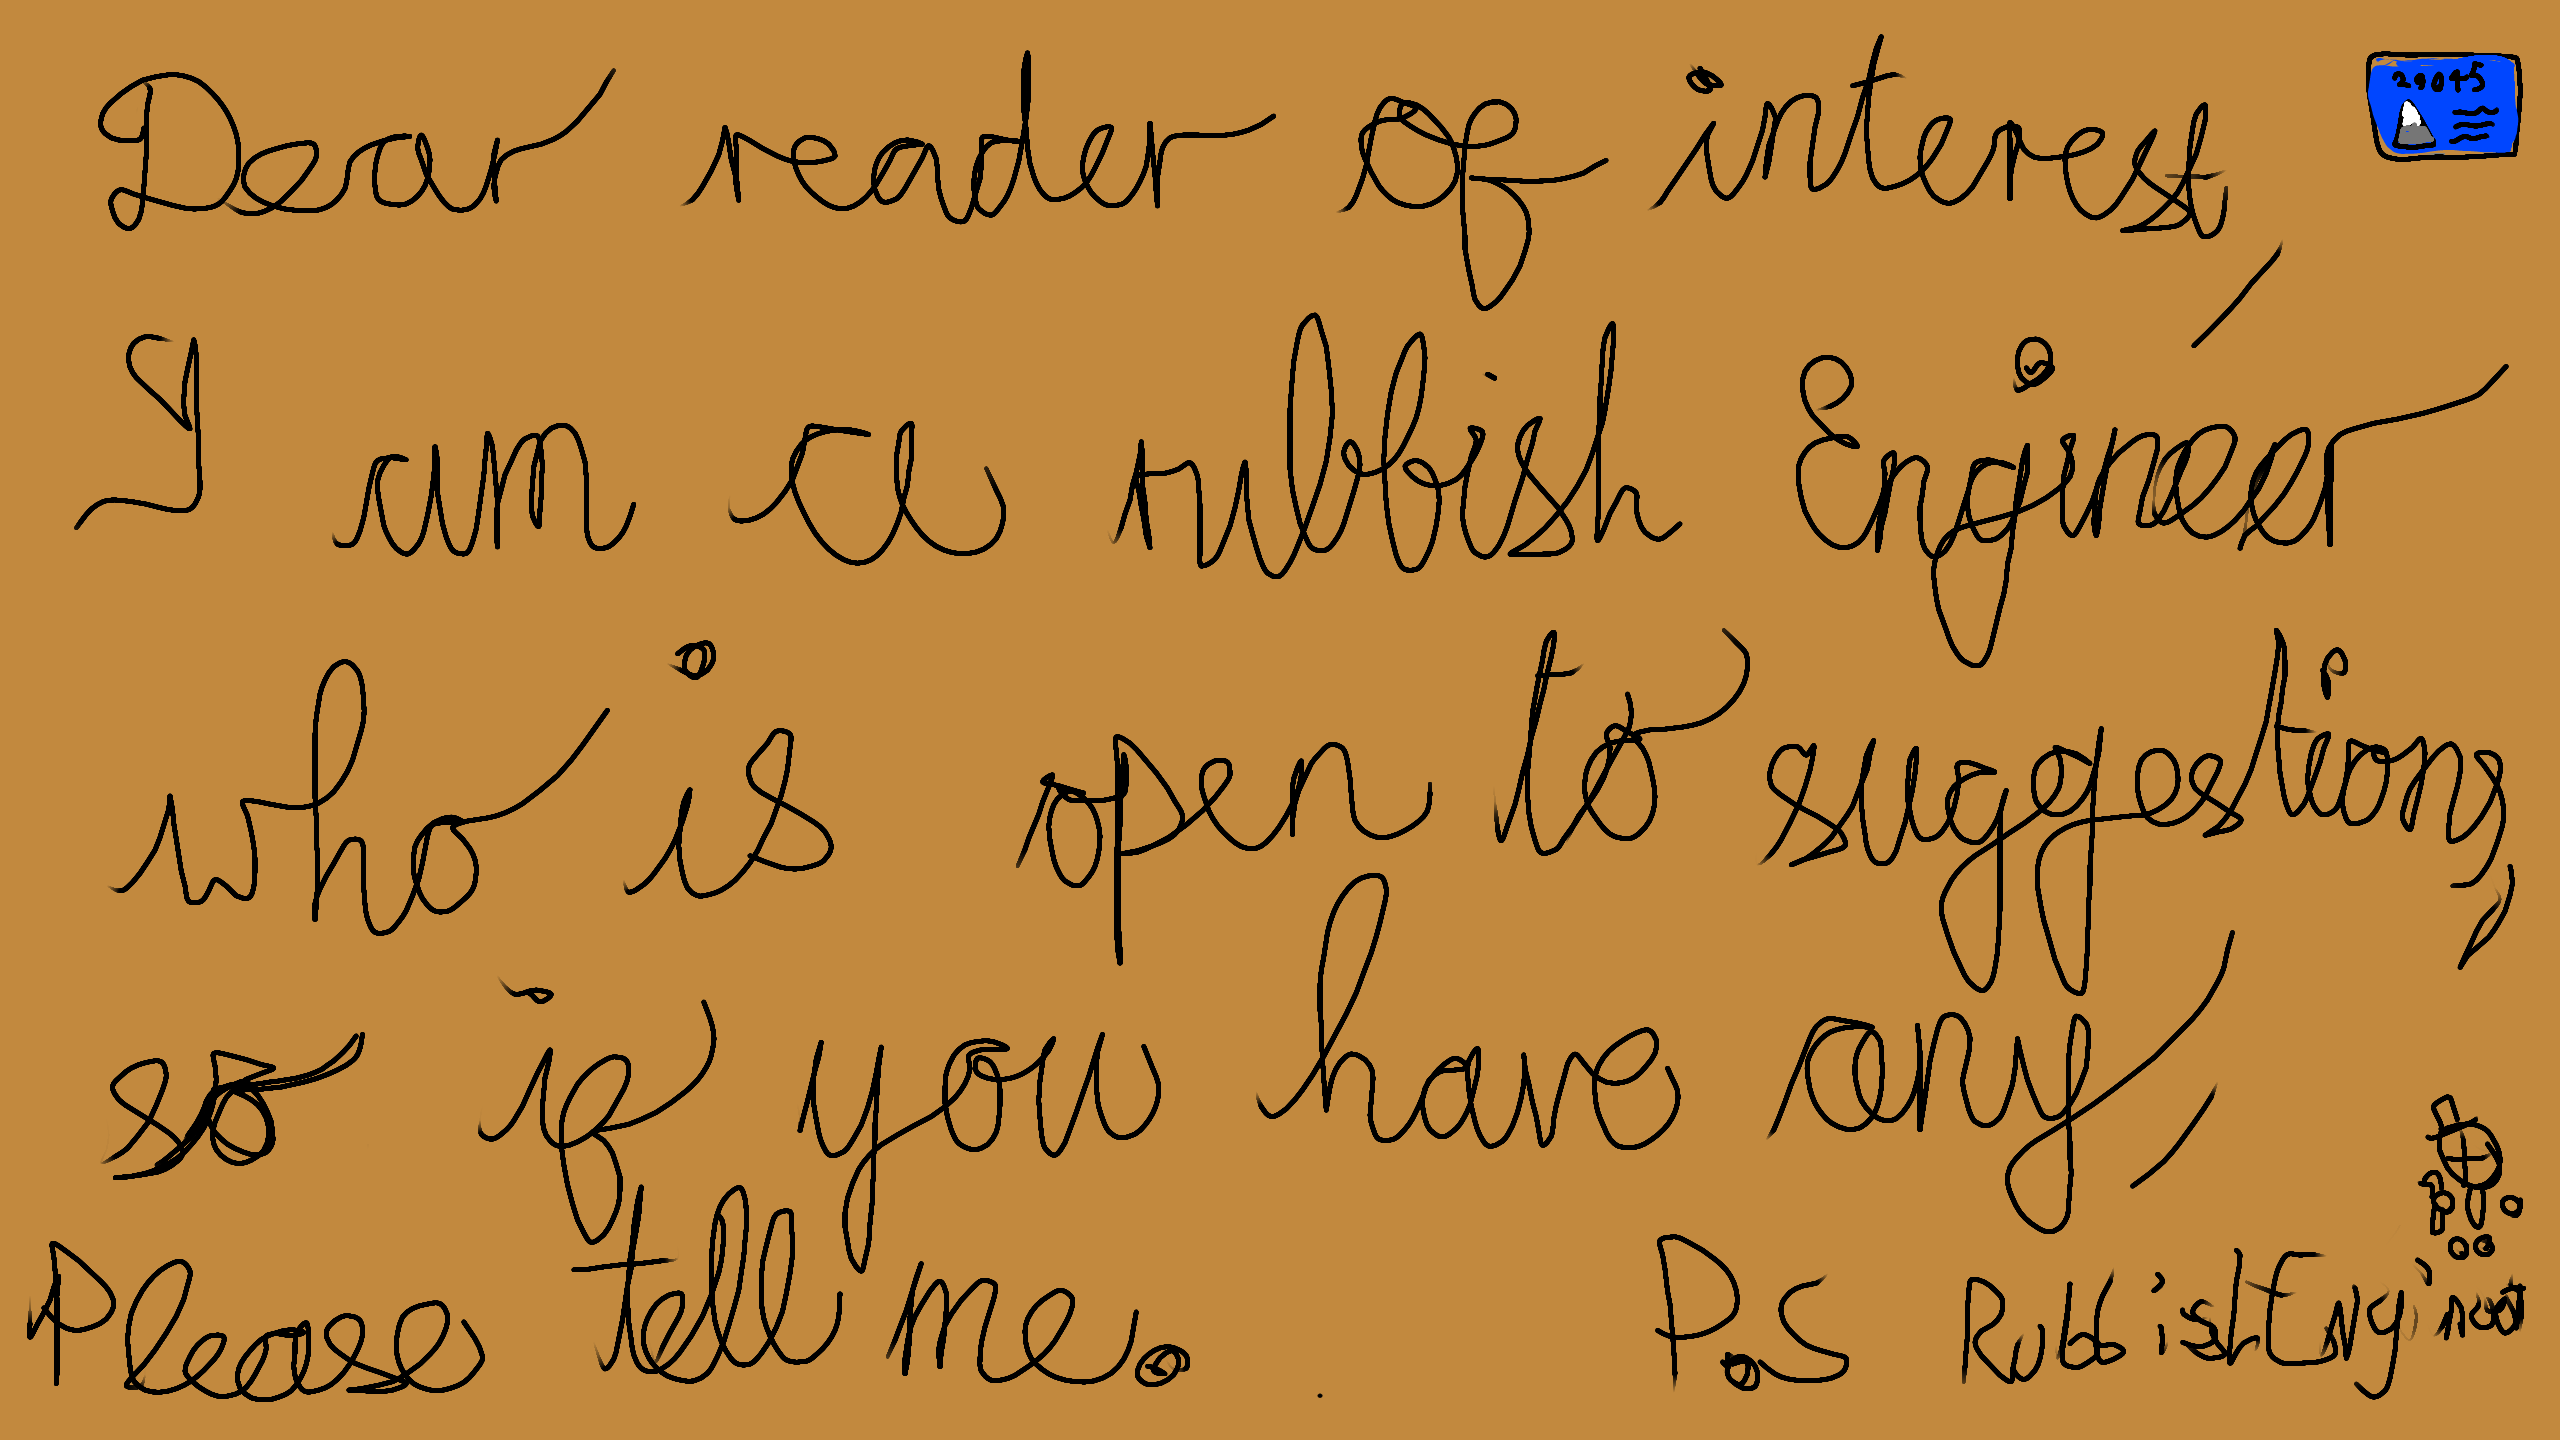 Dear reader of interest,
29045
I am a rubbish Engineer
who is open to suggestions,
so if you have any,
Please tell me.
P.S RubbishEngineer